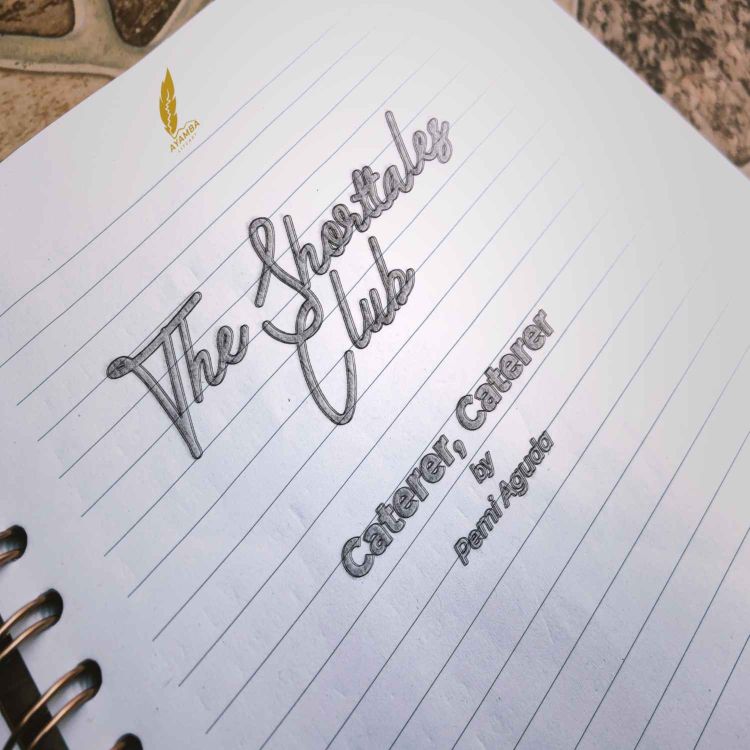 AYAMBA
LITCAST
The Shorttales
Club
Caterer, Caterer
by
Pemi Aguda